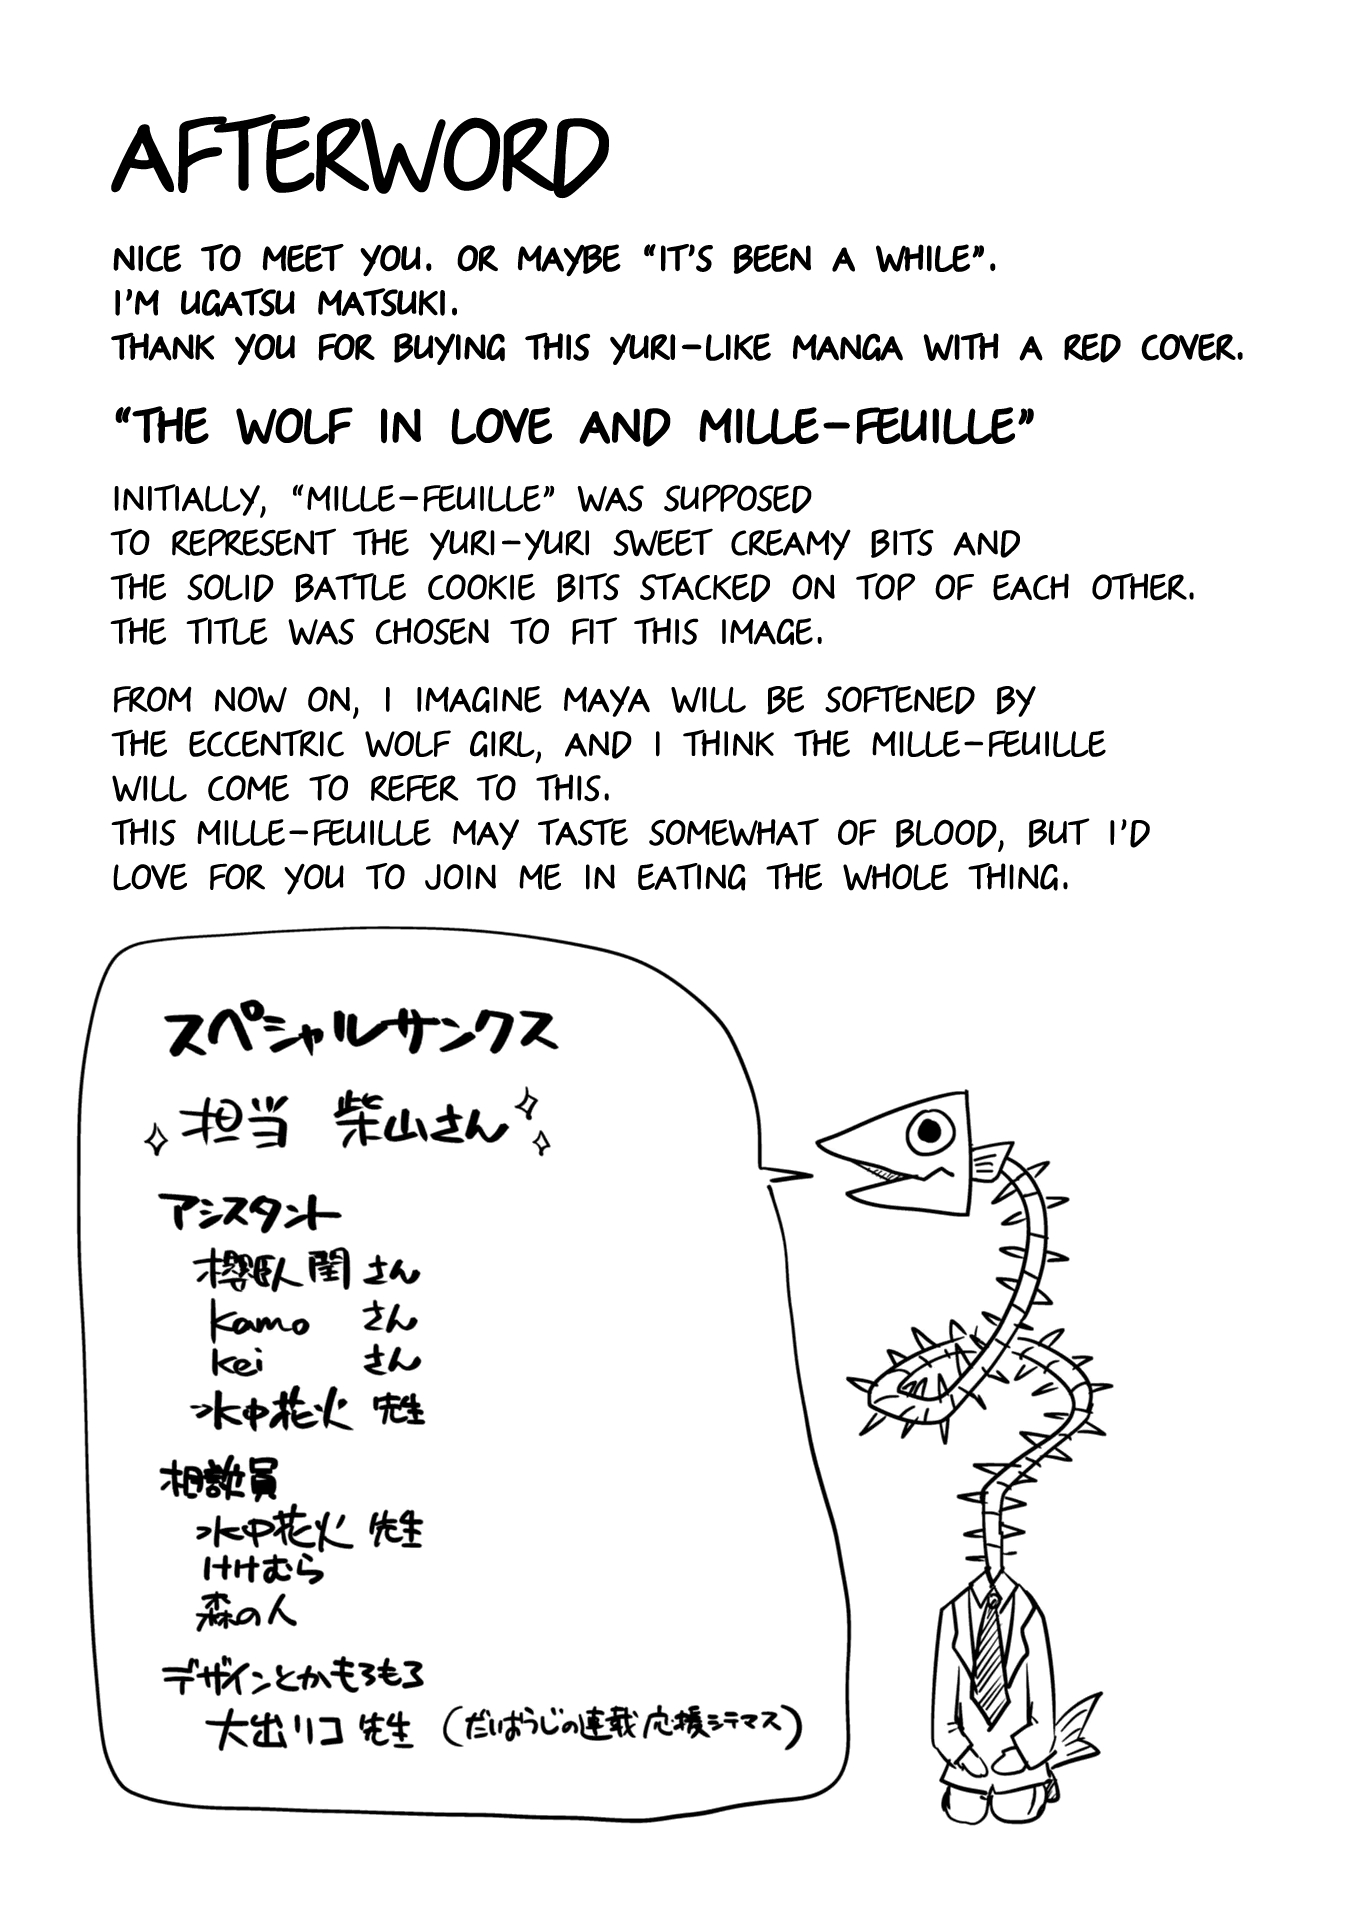 AFTERWORD
NICE TO MEET YOU. OR MAYBE “IT'S BEEN A WHILE”.
I'M UGATSU MATSUKI.
THANK YOU FOR BUYING THIS YURI-LIKE MANGA WITH A RED COVER.
“THE WOLF IN LOVE AND MILLE-FEUILLE”
INITIALLY, “MILLE-FEUILLE” WAS SUPPOSED
TO REPRESENT THE YURI-YURI SWEET CREAMY BITS AND
THE SOLID BATTLE COOKIE BITS STACKED ON TOP OF EACH OTHER.
THE TITLE WAS CHOSEN TO FIT THIS IMAGE.
FROM NOW ON, I IMAGINE MAYA WILL BE SOFTENED BY
THE ECCENTRIC WOLF GIRL, AND I THINK THE MILLE-FEUILLE
WILL COME TO REFER TO THIS.
THIS MILLE-FEUILLE MAY TASTE SOMEWHAT OF BLOOD, BUT I'D
LOVE FOR YOU TO JOIN ME IN EATING THE WHOLE THING.
スペシャルサンクス
担当 柴山さん
アシスタント
さん
kamo さん
kei さん
水中花火 先生
相談員
水中花火 先生
けけむら
森の人
デザインとかもろもろ
大出リコ 先生 (だいおうじの連載応援シテマス)